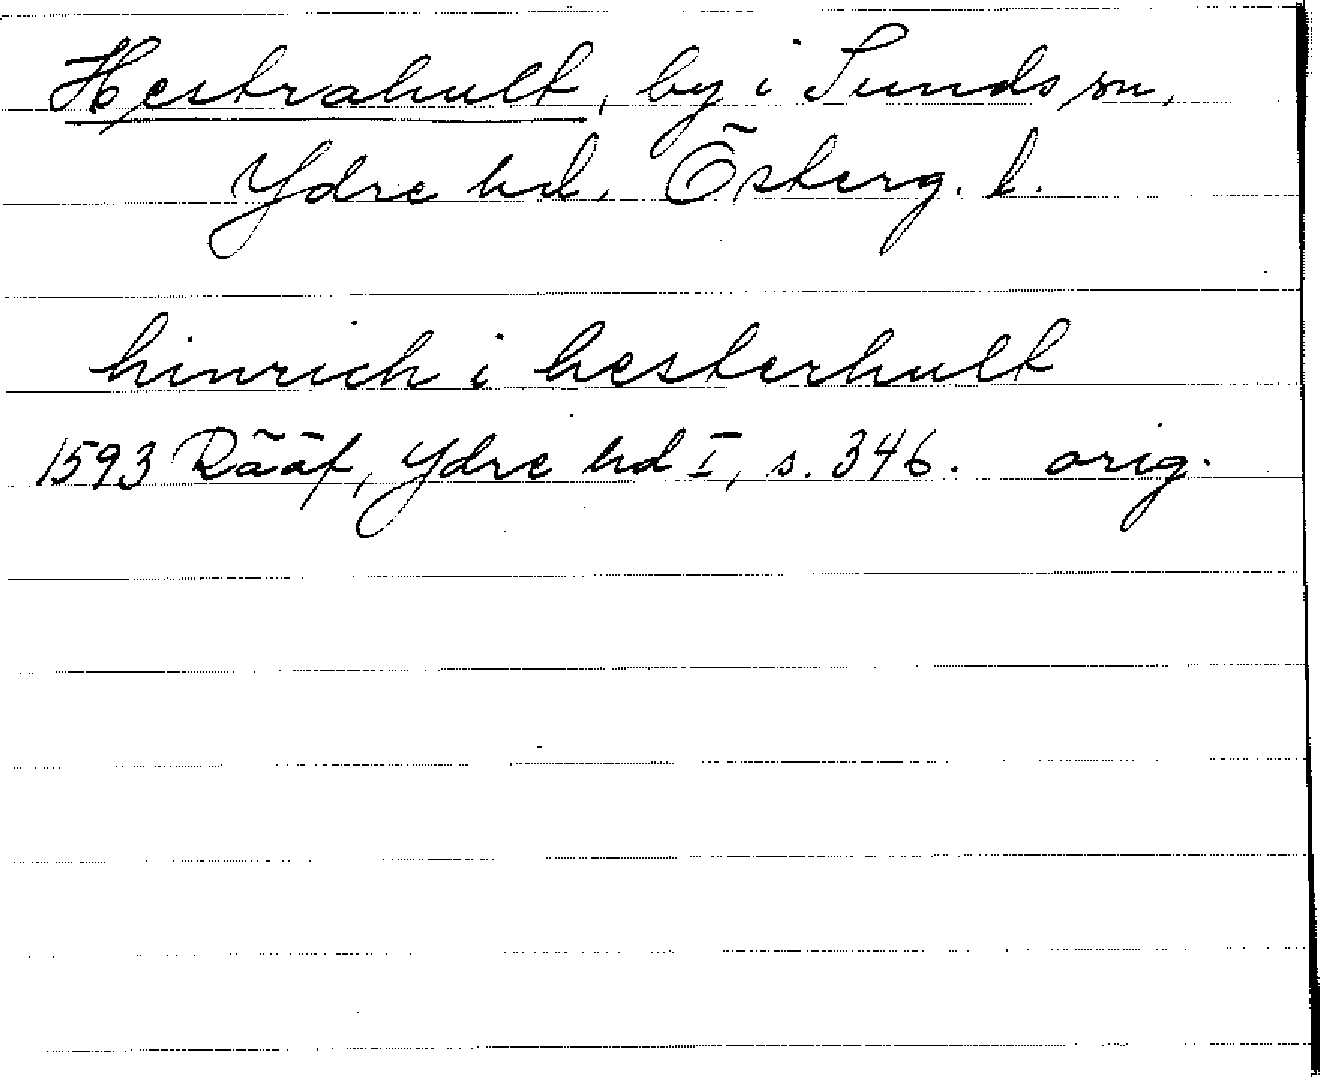 Hestrahult, by i Sunds sn,
Ydre hd, Österg. l.
hinrich i hesterhult
1593 Rääf, Ydre hd I, s. 346. orig.